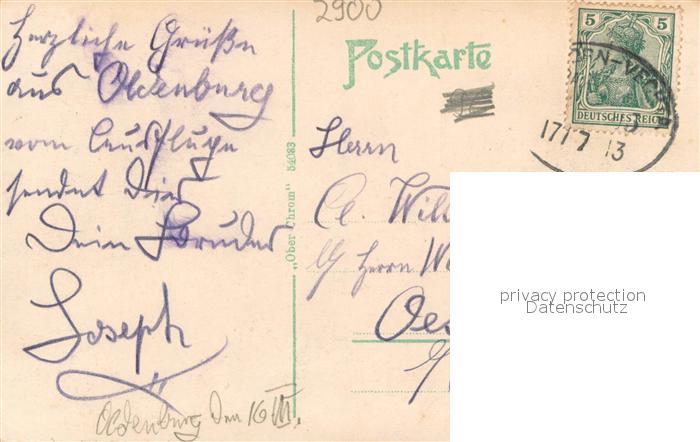 2900
Herzliche Grüße
aus Oldenburg
vom Ausfluge
sendet Dir
Dein Bruder
Joseph
Oldenburg den 16 VII.
"Ober Chrom" 54083
Postkarte
5 5
DEUTSCHES REICH
EN-VECH
17 7 13
Herrn
Cl. Will
b/ Herrn
Oes
privacy protection
Datenschutz